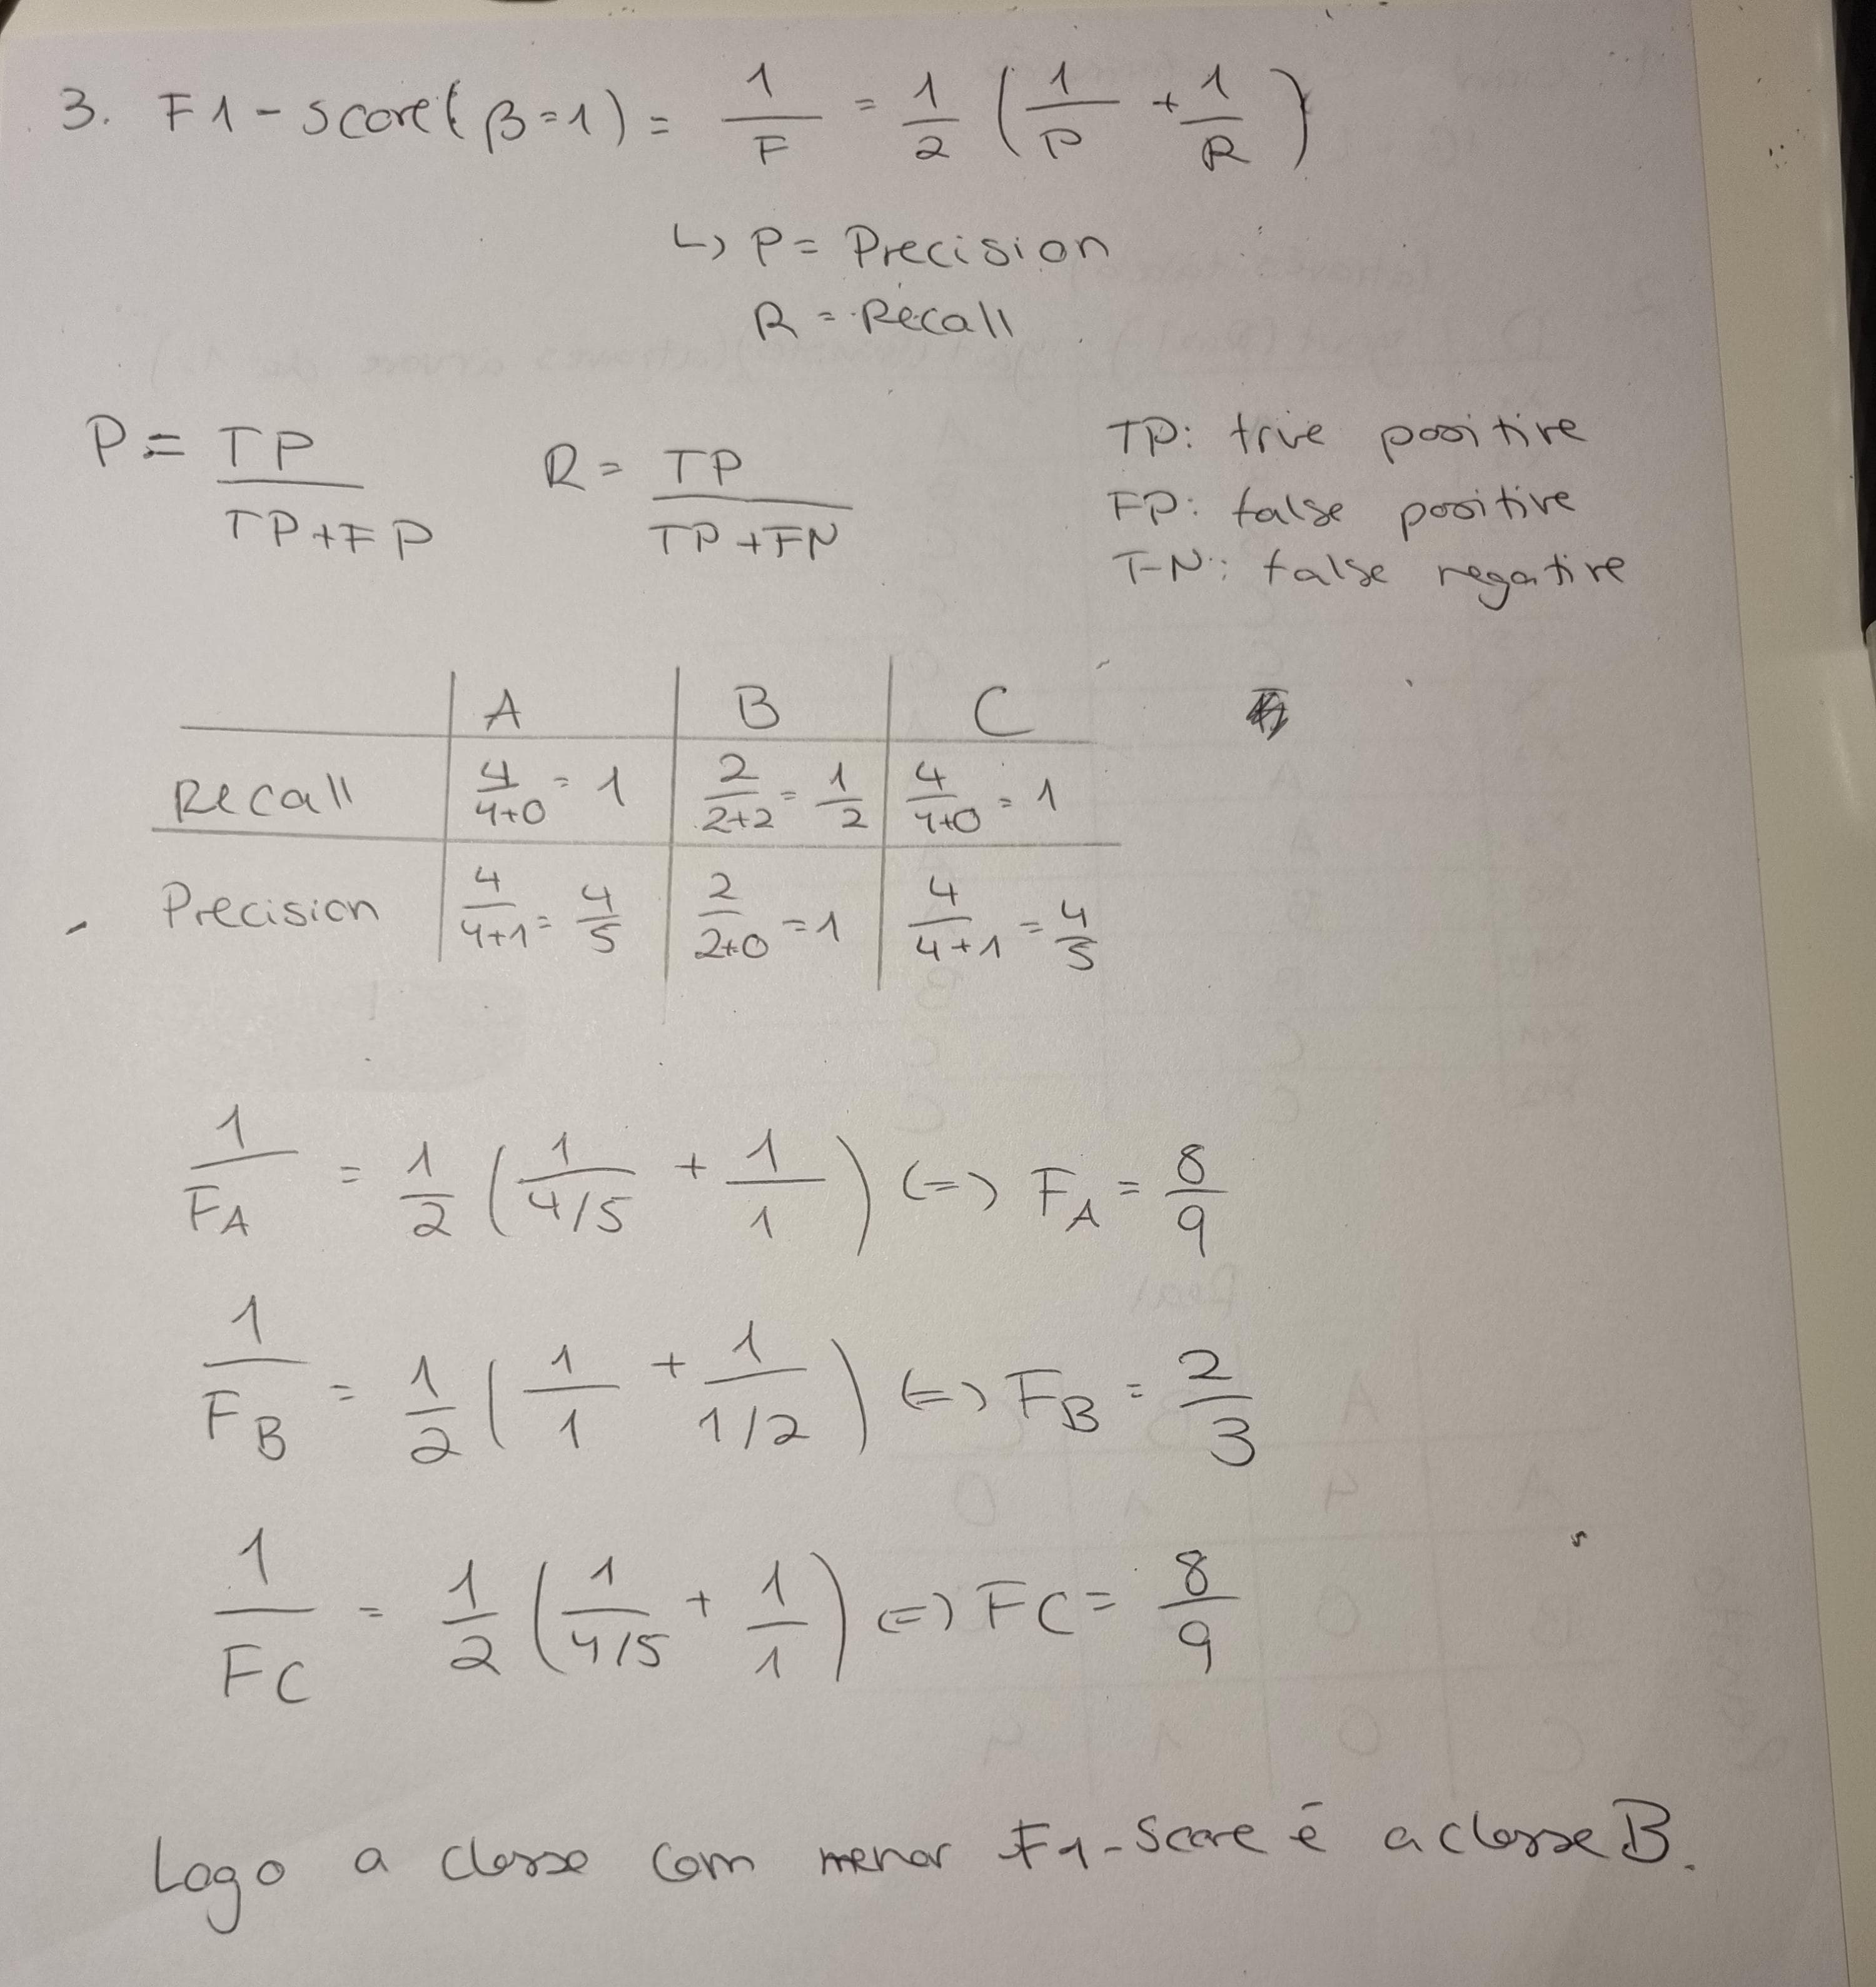 3. F1-score(β=1) = 1/F = 1/2 (1/P + 1/R)
↳ P = Precision
R = Recall
P = TP/(TP+FP) R = TP/(TP+FN)
TP: true positive
FP: false positive
FN: false negative
A B C
Recall 4/(4+0) = 1 2/(2+2) = 1/2 4/(4+0) = 1
Precision 4/(4+1) = 4/5 2/(2+0) = 1 4/(4+1) = 4/5
1/FA = 1/2 (1/(4/5) + 1/1) (=) FA = 8/9
1/FB = 1/2 (1/1 + 1/(1/2)) (=) FB = 2/3
1/FC = 1/2 (1/(4/5) + 1/1) (=) FC = 8/9
Logo a classe com menor F1-score é a classe B.